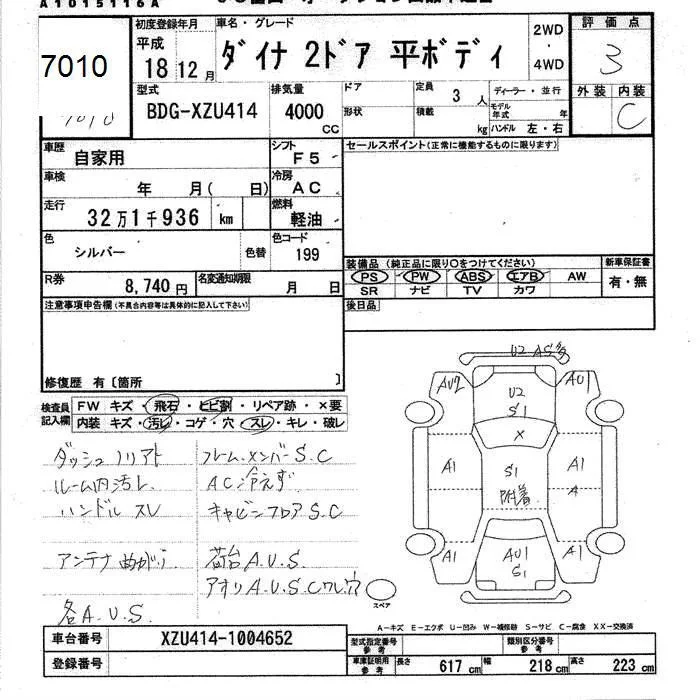 A1015116A
7010
初度登録年月
平成
18 12 月
車名・グレード
ダイナ 2ドア 平ボディ
2WD
・
4WD
評価点
3
外装 内装
C
型式
BDG-XZU414
排気量
4000
CC
ドア
形状
定員
3 人
積載
kg
ディーラー・並行
モデル年式 年
ハンドル 左・右
車歴
自家用
シフト
F5
車検
年 月( 日)
冷房
AC
走行
32万1千936 km
燃料
軽油
色
シルバー
色替
色コード
199
R券
8,740 円
名変通知期限
月 日
セールスポイント(正常に機能するものに限ります)
装備品 (純正品に限り○をつけてください)
PS PW ABS エアB AW
SR ナビ TV カワ
新車保証書
有・無
後日品
注意事項申告欄(不具合内容等は具体的に記入して下さい)
修復歴 有〔箇所 〕
検査員記入欄
FW キズ・飛石・ヒビ割・リペア跡・×要
内装 キズ・汚レ・コゲ・穴・スレ・キレ・破レ
ダッシュノリアト
ルーム内汚レ
ハンドルスレ
アンテナ曲がり
各A.U.S.
フレーム.メンバーS.C
AC冷えず
キャビンフロアS.C
荷台A.U.S
アオリA.U.S.Cワレ.穴
U2 AS多
AU2
U2
S1
AU1
X
A1
S1
附着
A1
A
A1
AU1
S1
A1
スペア
A-キズ E-エクボ U-凹み W-補修跡 S-サビ C-腐食 XX-交換済
車台番号
XZU414-1004652
登録番号
型式指定番号
参考
類別区分番号
参考
車庫証明用
参考
長さ 617 cm
幅 218 cm
高さ 223 cm